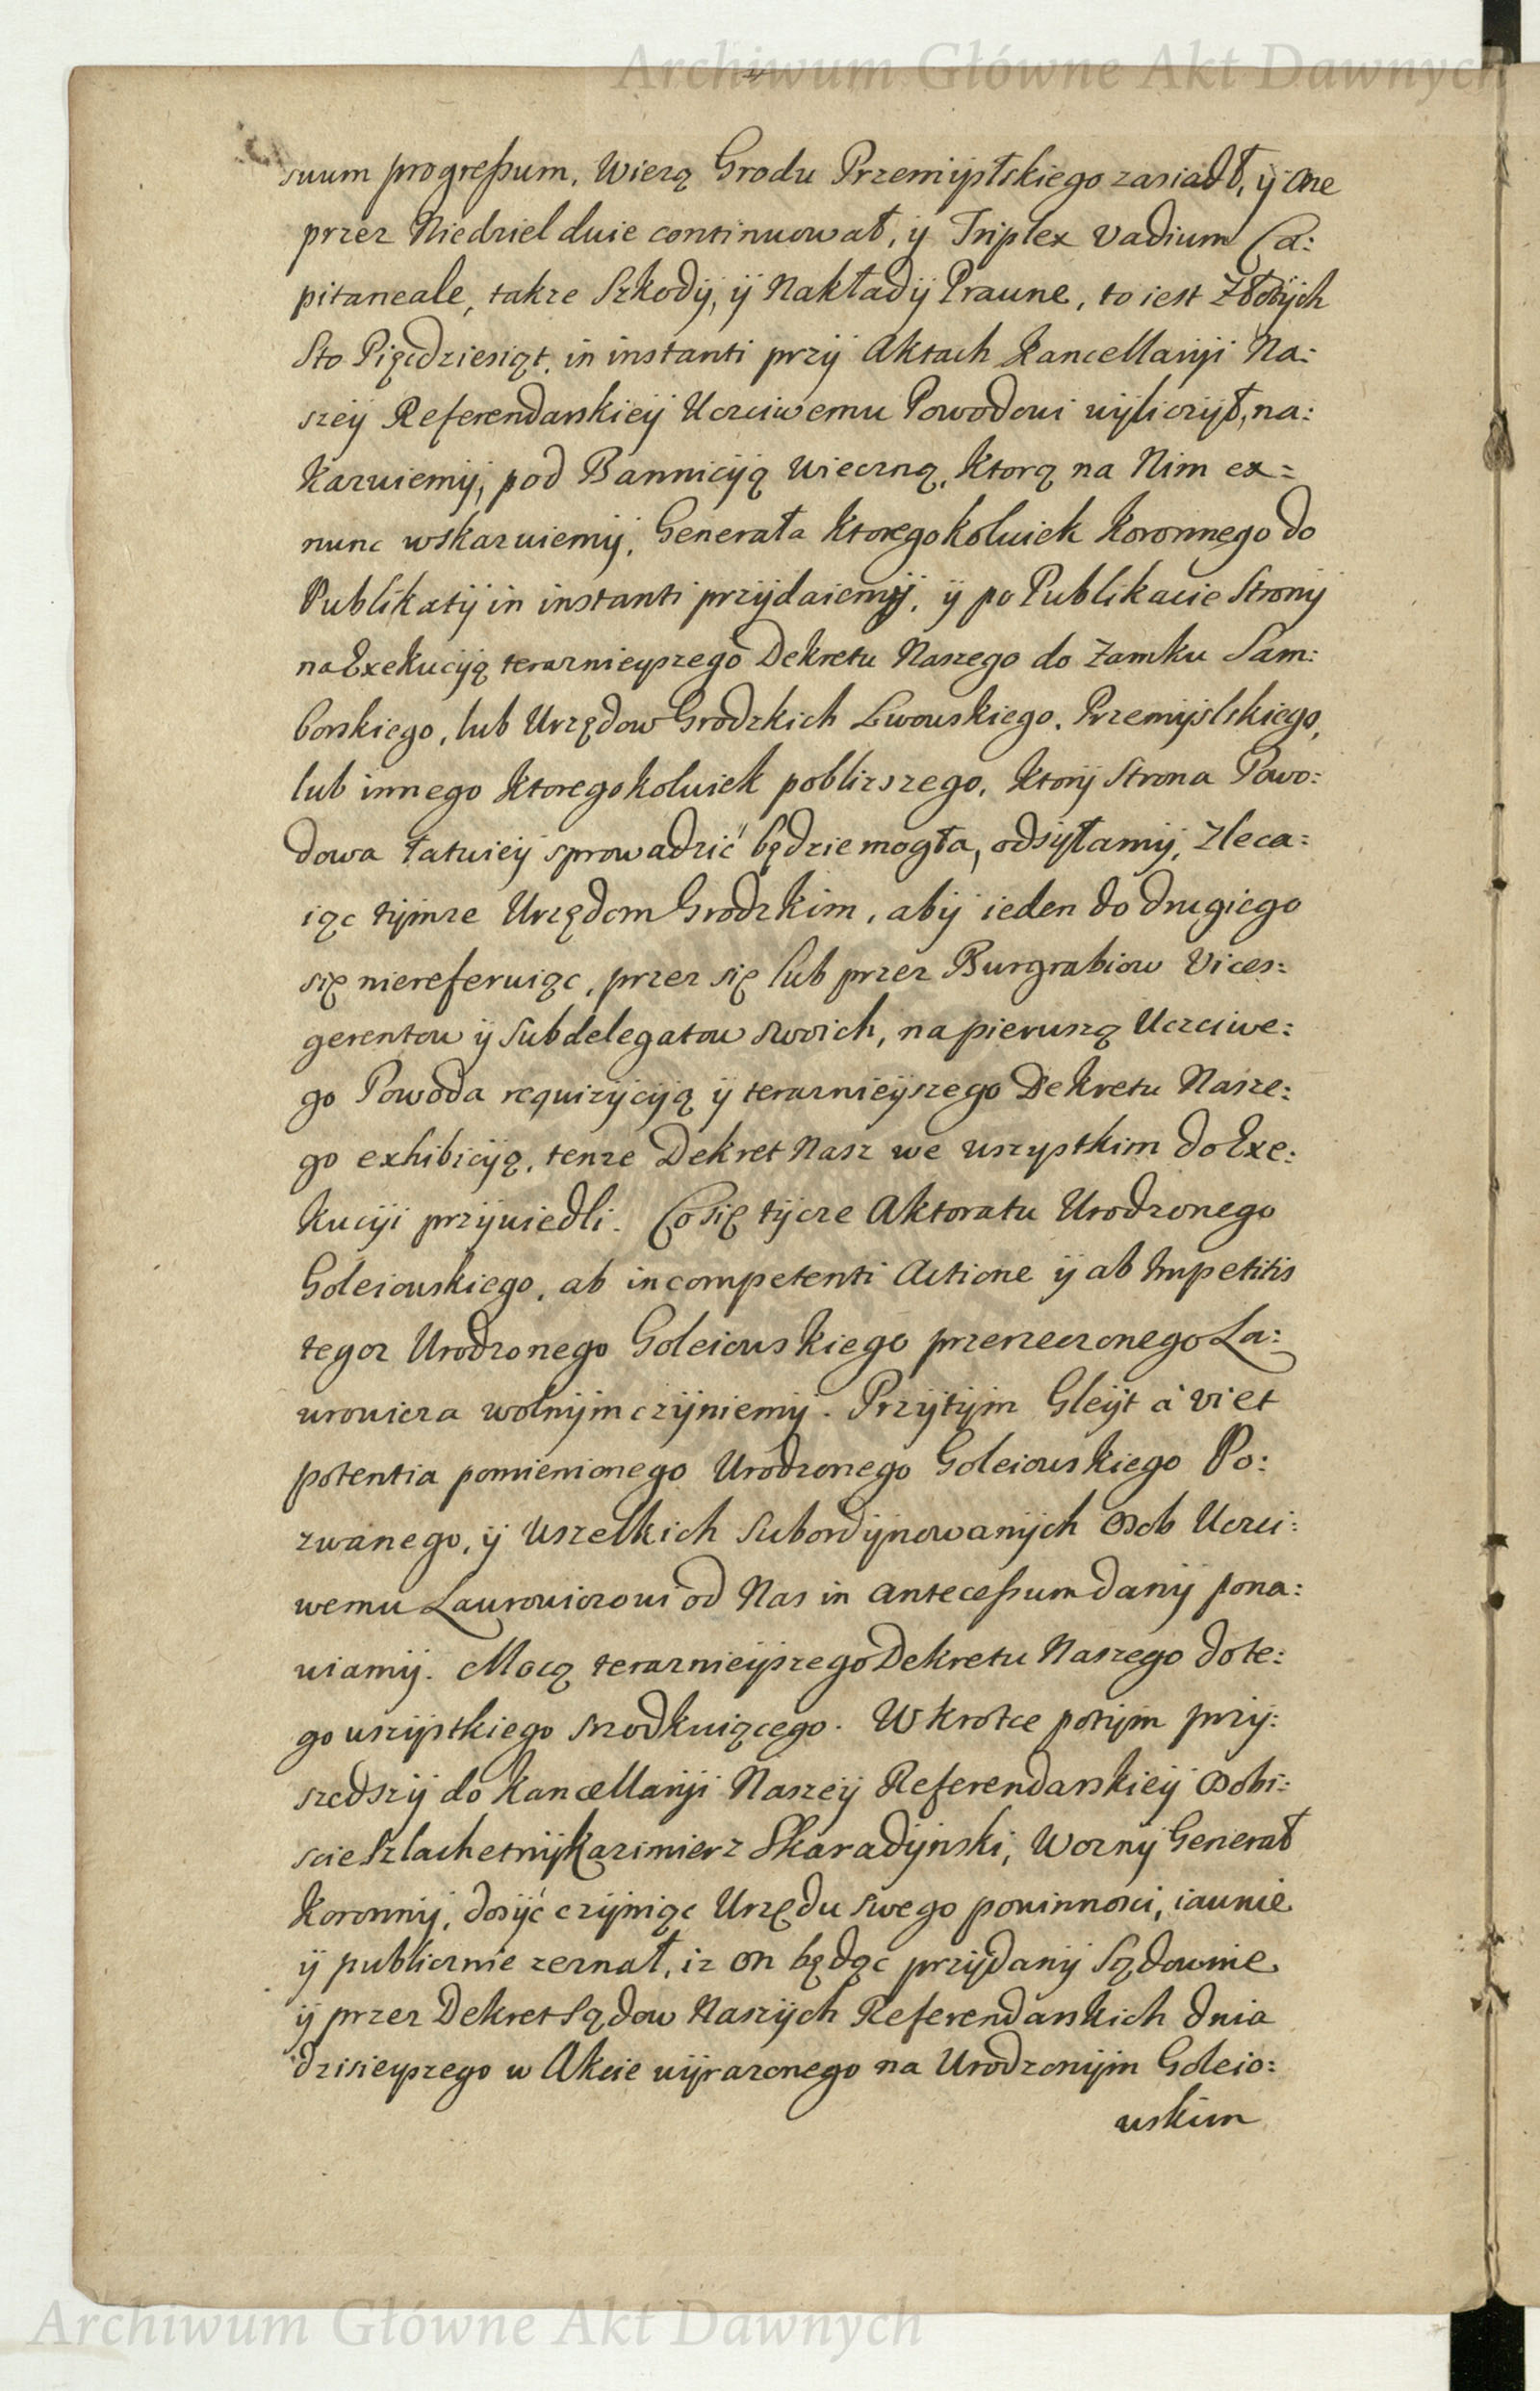 Archiwum Główne Akt Dawnych
suum progreſsum, Wierzą Grodu Przemiyslskiego zasiadł, ij one
przez Niedziel dwie continuował, ij Triplex Vadium Ca:
pitaneale, takze Szkodij, ij Nakładij Prawne, to iest Złotijch
Sto Pięcdziesiąt, in instanti przij Aktach Kancellariji Na:
szeij Referendarskieij Uczciwemu Powodowi wijliczijł, na:
kazuiemij, pod Bannicijią wieczną, ktorą na Nim ex=
nunc wskazuiemij, Generała ktoregokolwiek Koronnego do
Publikatij in instanti przijdaiemij, ij po Publikacie Stronij
na Exekucijią teraznieyszego Dekretu Naszego do Zamku Sam:
borskiego, lub Urzędow Grodzkich Lwowskiego, Przemijslskiego,
lub innego ktoregokolwiek poblizszego, ktorij Strona Powo:
dowa łatwieij sprowadzić będzie mogła, odsijłamij, zleca:
iąc tijmze Urzędom Grodzkim, abij ieden do drugiego
się niereferuiąc, przez się lub przez Burgrabiow Vices:
gerentow ij Subdelegatow swoich, na pierwszą Uczciwe:
go Powoda requizijcijią ij teraznieijszego Dekretu Nasze:
go exhibicijią, tenze Dekret Nasz we wszystkim do Exe:
kuciji przijwiedli. Co się tijcze Aktoratu Urodzonego
Goleiowskiego, ab incompetenti Actione ij ab Impetitis
tegoz Urodzonego Goleiowskiego przerzeczonego La:
wrowicza wolnijm czijniemij. Przijtijm Gleijt à vi et
potentia pomienionego Urodzonego Goleiowskiego Po:
zwanego, ij wszelkich Subordijnowanijch Osob Uczci:
wemu Lawrowiczowi od Nas in anteceſsum danij pona:
wiamij. Mocą teraznieijszego Dekretu Naszego do te:
go wszijstkiego srzodkuiącego. W krotce potijm przij:
szedszij do Kancellariji Naszeij Referendarskieij Osobi:
scie Szlachetnij Kazimierz Skaradijnski, Woznij Generał
Koronnij, dosijć czijniąc Urzędu swego powinnosci, iawnie
ij publicznie zeznał, iz on będąc przijdanij Sądownie
ij przez Dekret Sądow Naszijch Referendarskich dnia
dzisieyszego w Akcie wijrazonego na Urodzonijm Goleio:
wskim
Archiwum Główne Akt Dawnych